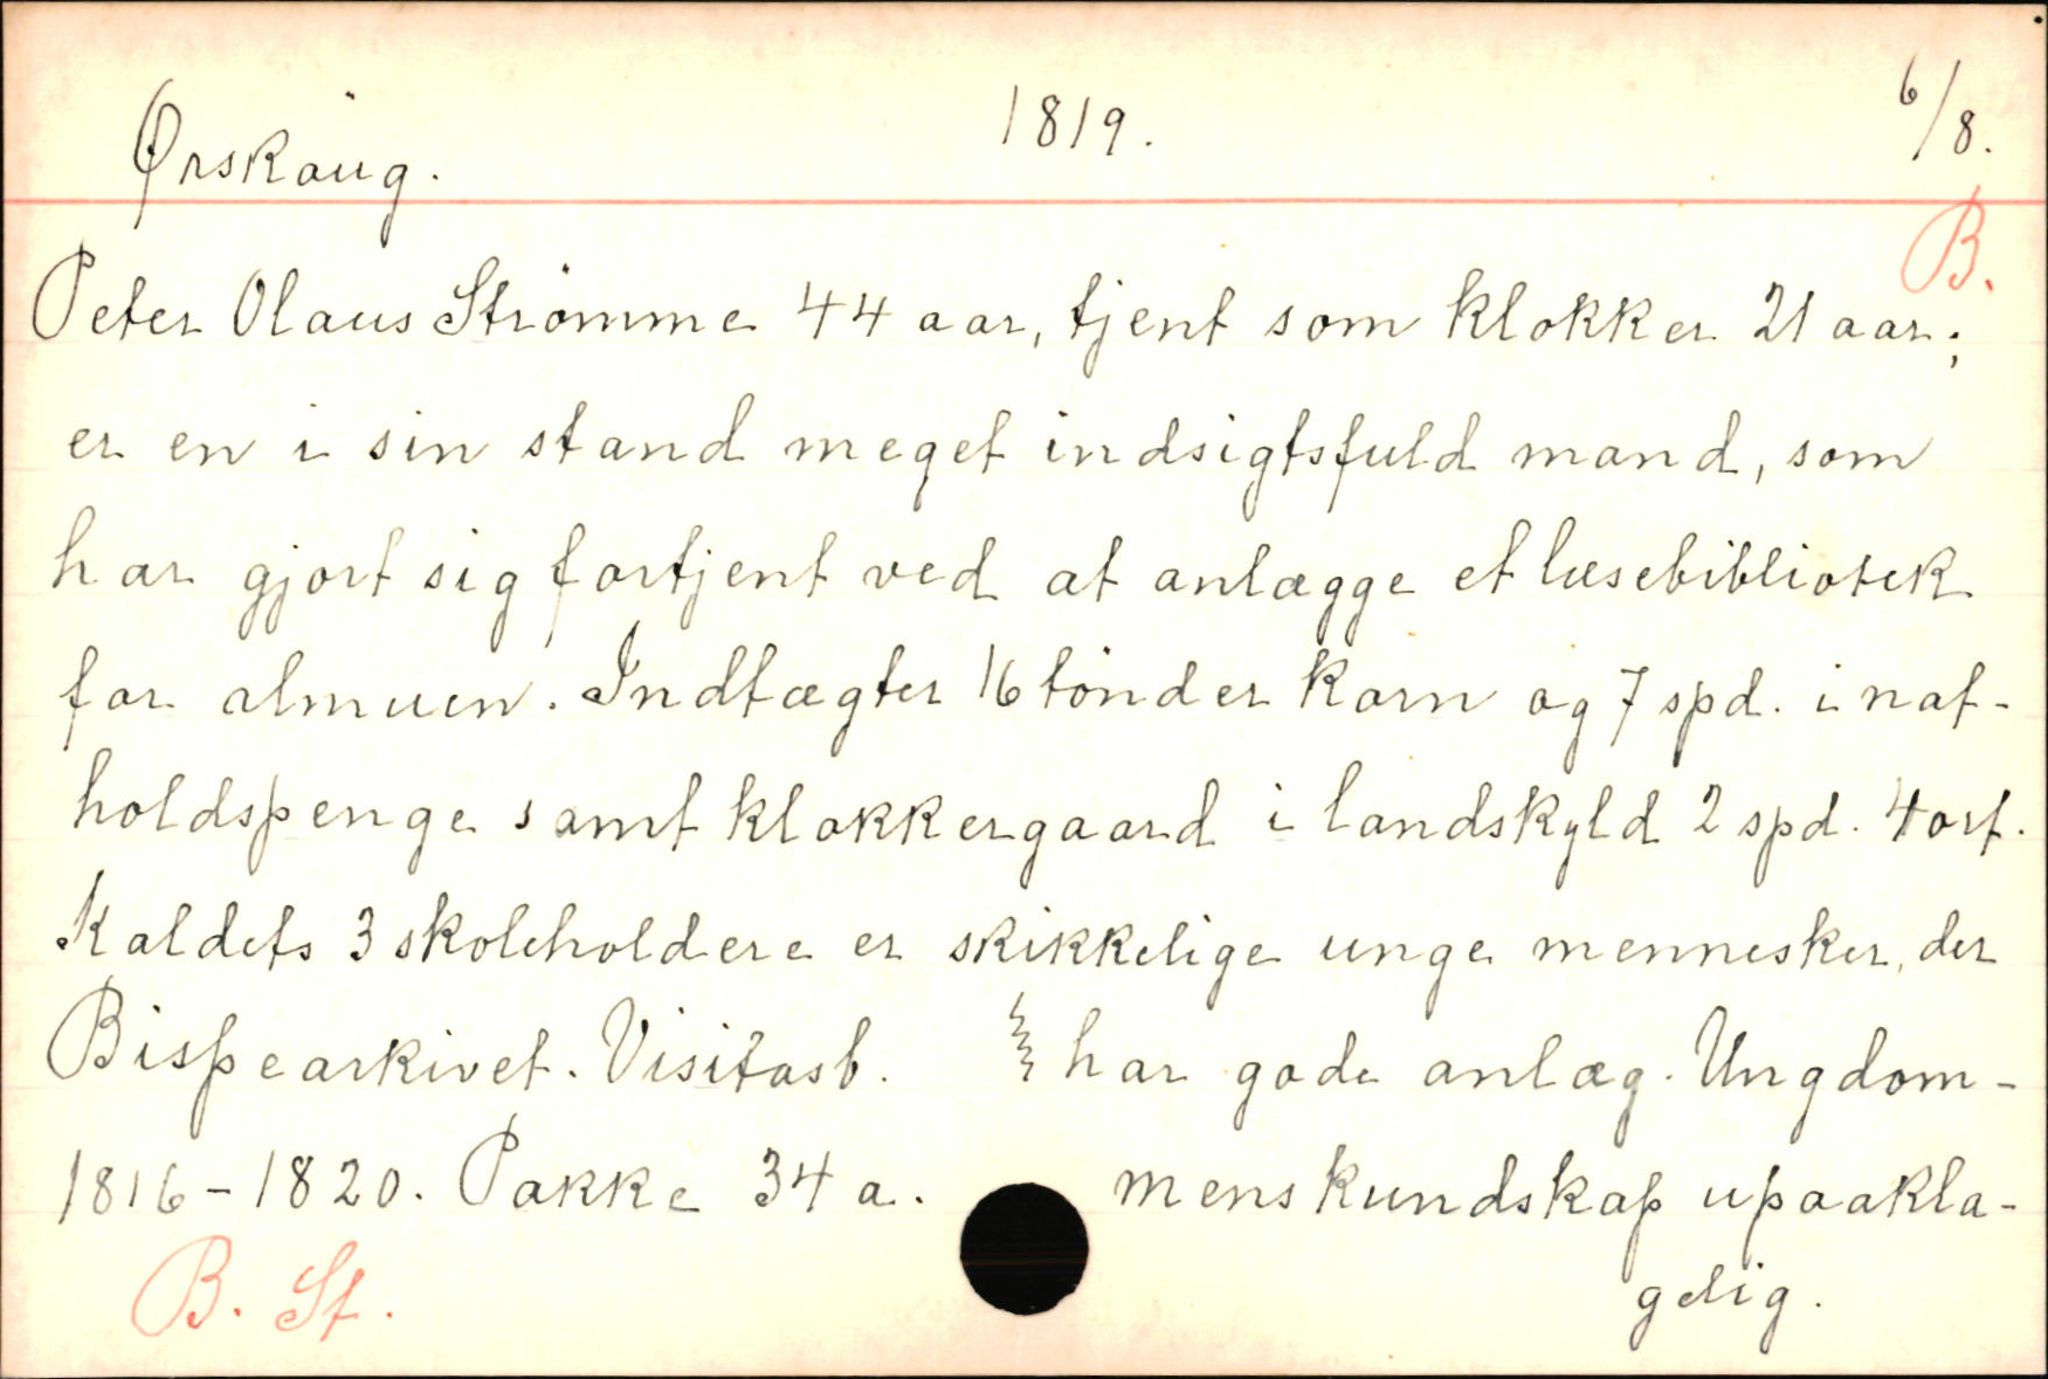 Ørskaug. 1819. 6/8.
B.
Peter Olaus Strömme 44 aar, tjent som klokker 21 aar;
er en i sin stand meget indsigtsfuld mand, som
har gjort sig fortjent ved at anlægge et læsebibliotek
for almuen. Indtægter 16 tönder korn og 7 spd. i nat-
holdspenge samt klokkergaard i landskyld 2 spd. 4 ort.
Kaldets 3 skoleholdere er skikkelige unge mennesker, der
har gode anlæg. Ungdom-
menskundskap upaakla-
gelig.
Bispearkivet. Visitasb.
1816-1820. Pakke 34 a.
B. St.